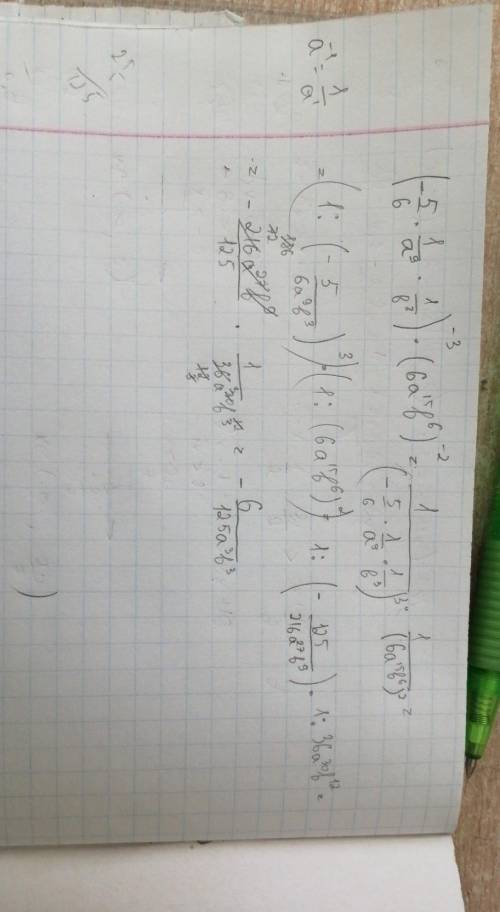 (-5/6 · 1/a⁹ · 1/b³)⁻³ · (6a¹⁵b⁶)⁻² = 1/(-5/6 · 1/a⁹ · 1/b³)³ · 1/(6a¹⁵b⁶)² =
a⁻¹ = 1/a¹
= (1 : (-5/6a⁹b³))³ · (1 : (6a¹⁵b⁶))² = 1 : (-125/216a²⁷b⁹) · 1 : 36a³⁰b¹² =
= - 216a²⁷b⁹/125 · 1/36a³⁰b¹² = - 6/125a³b³